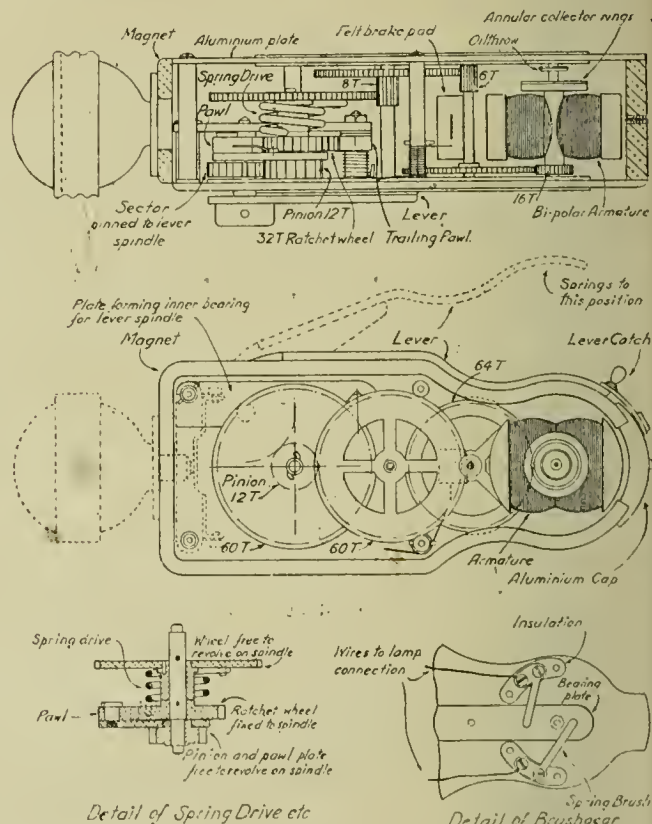 Magnet
Aluminium plate
Felt brake pad
Annular collector rings
Oil throw
Spring Drive
8T
6T
Pawl
Sector
pinned to lever
spindle
Pinion 12T
32T Ratchet wheel
Lever
Trailing Pawl.
16T
Bi-polar Armature
Plate forming inner bearing
for lever spindle
Magnet
Lever
Springs to
this position
Lever Catch
64T
Pinion
12T
60T
60T
Armature
Aluminium Cap
Spring drive
Wheel free to
revolve on spindle
Pawl
Ratchet wheel
fixed to spindle
Pinion and pawl plate
free to revolve on spindle
Detail of Spring Drive etc
Insulation
Wires to lamp
connection
Bearing
plate
Spring Brush
Detail of Brushgear